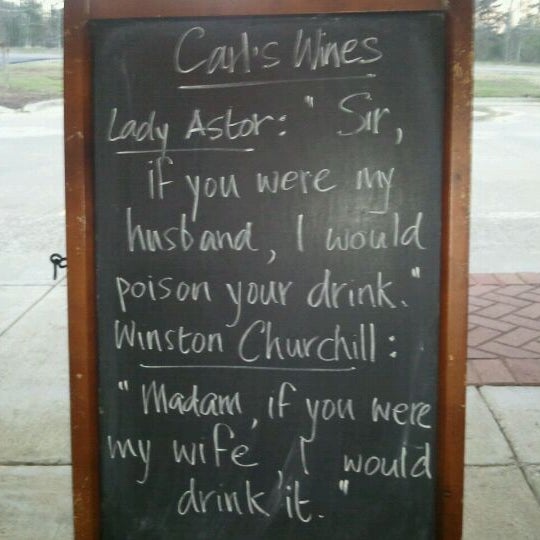 Carl's Wines
Lady Astor: "Sir,
if you were my
husband, I would
poison your drink."
Winston Churchill:
"Madam, if you were
my wife, I would
drink it."